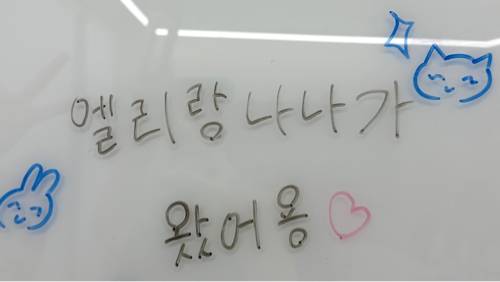 엘리랑 나나가
왔어용